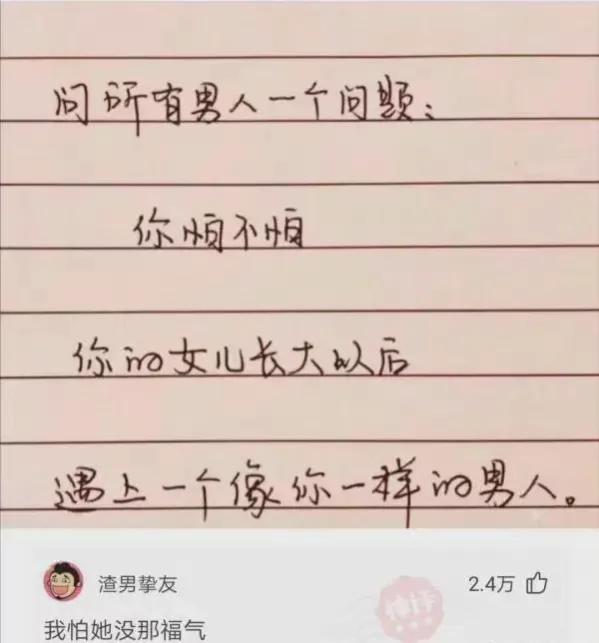 问所有男人一个问题：
你怕不怕
你的女儿长大以后
遇上一个像你一样的男人。
渣男挚友
2.4万
我怕她没那福气
神评